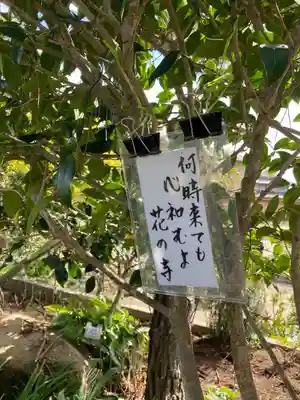 何時来ても
心和むよ
花の寺